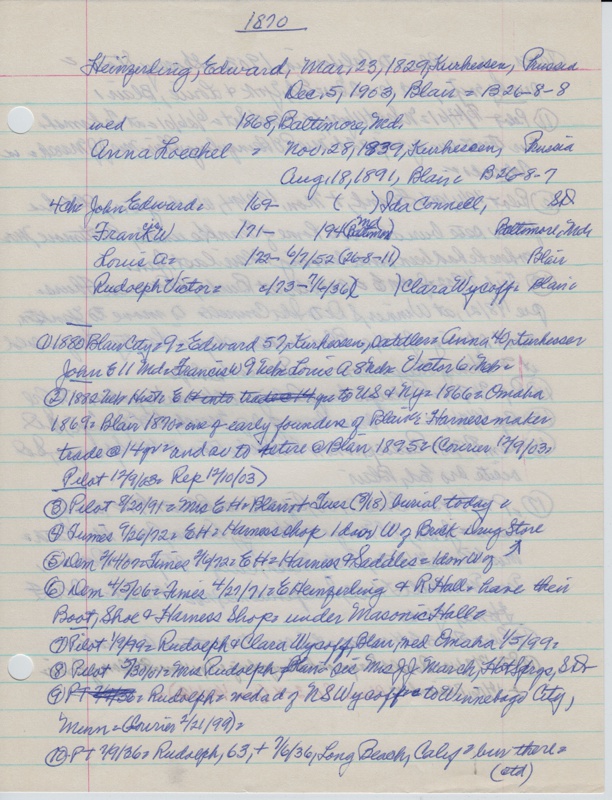 1870
Heinzerling, Edward, Mar, 23, 1829, Kurhessen, Prussia
Dec. 5, 1903, Blair = B26-8-8
wed 1868, Baltimore, Md,
Anna Loechel = Nov. 28, 1839, Kurhessen, Prussia
Aug, 18, 1891, Blair = B26-8-7
4 ch= John Edward= 169- ( ) Ida Connell, SD
Frank W 171- 194 (Md Baltimore) Baltimore, Md,
Louis A= 172- 6/7/52 (26-8-11) Blair
Rudolph Victor= 173- 7/6/36 ( ) Clara Wycoff= Blair=
① 1880 Blair City= 9= Edward 52 Kurhessen, saddler= Anna 40, Kurhessen
John E 11 Md= Francis W 9 Neb= Louis A 8 Neb= Victor 6, Neb=
② 1882 Neb Hist= E H into trade @ 14 to US & NY= 1866= Omaha
1869= Blair 1870= one of early founders of Blair= Harnessmaker
trade @ 14 yr= and as to retire @ Blair 1895= (Courier 12/9/03=
Pilot 12/9/03= Rep 12/10/03)
③ Pilot 8/20/91= Mrs E H= Blair + Tues (8/18) burial today =
④ Times 9/26/72= E H= Harness shop 1 door W of Brick Drug Store
⑤ Dem = Times = E H= Harness & Saddles= 1 door W of ↑
⑥ Dem 4/5/06= Times 4/27/71= E Heinzerling & R Hall= have their
Boot, Shoe & Harness Shop= under Masonic Hall=
⑦ Pilot = Rudolph & Clara Wycoff, Blair, wed Omaha 1/5/99=
⑧ Pilot = Mrs Rudolph Blair= sis Mrs J J March, Hot Spgs, SD
⑨ PT = Rudolph= wed a d of N S Wycoff= to Winnebago City,
Minn= Courier 2/21/99)=
⑩ PT 7/9/36= Rudolph, 63, + 7/6/36, Long Beach, Calif= bur there=
(ctd)